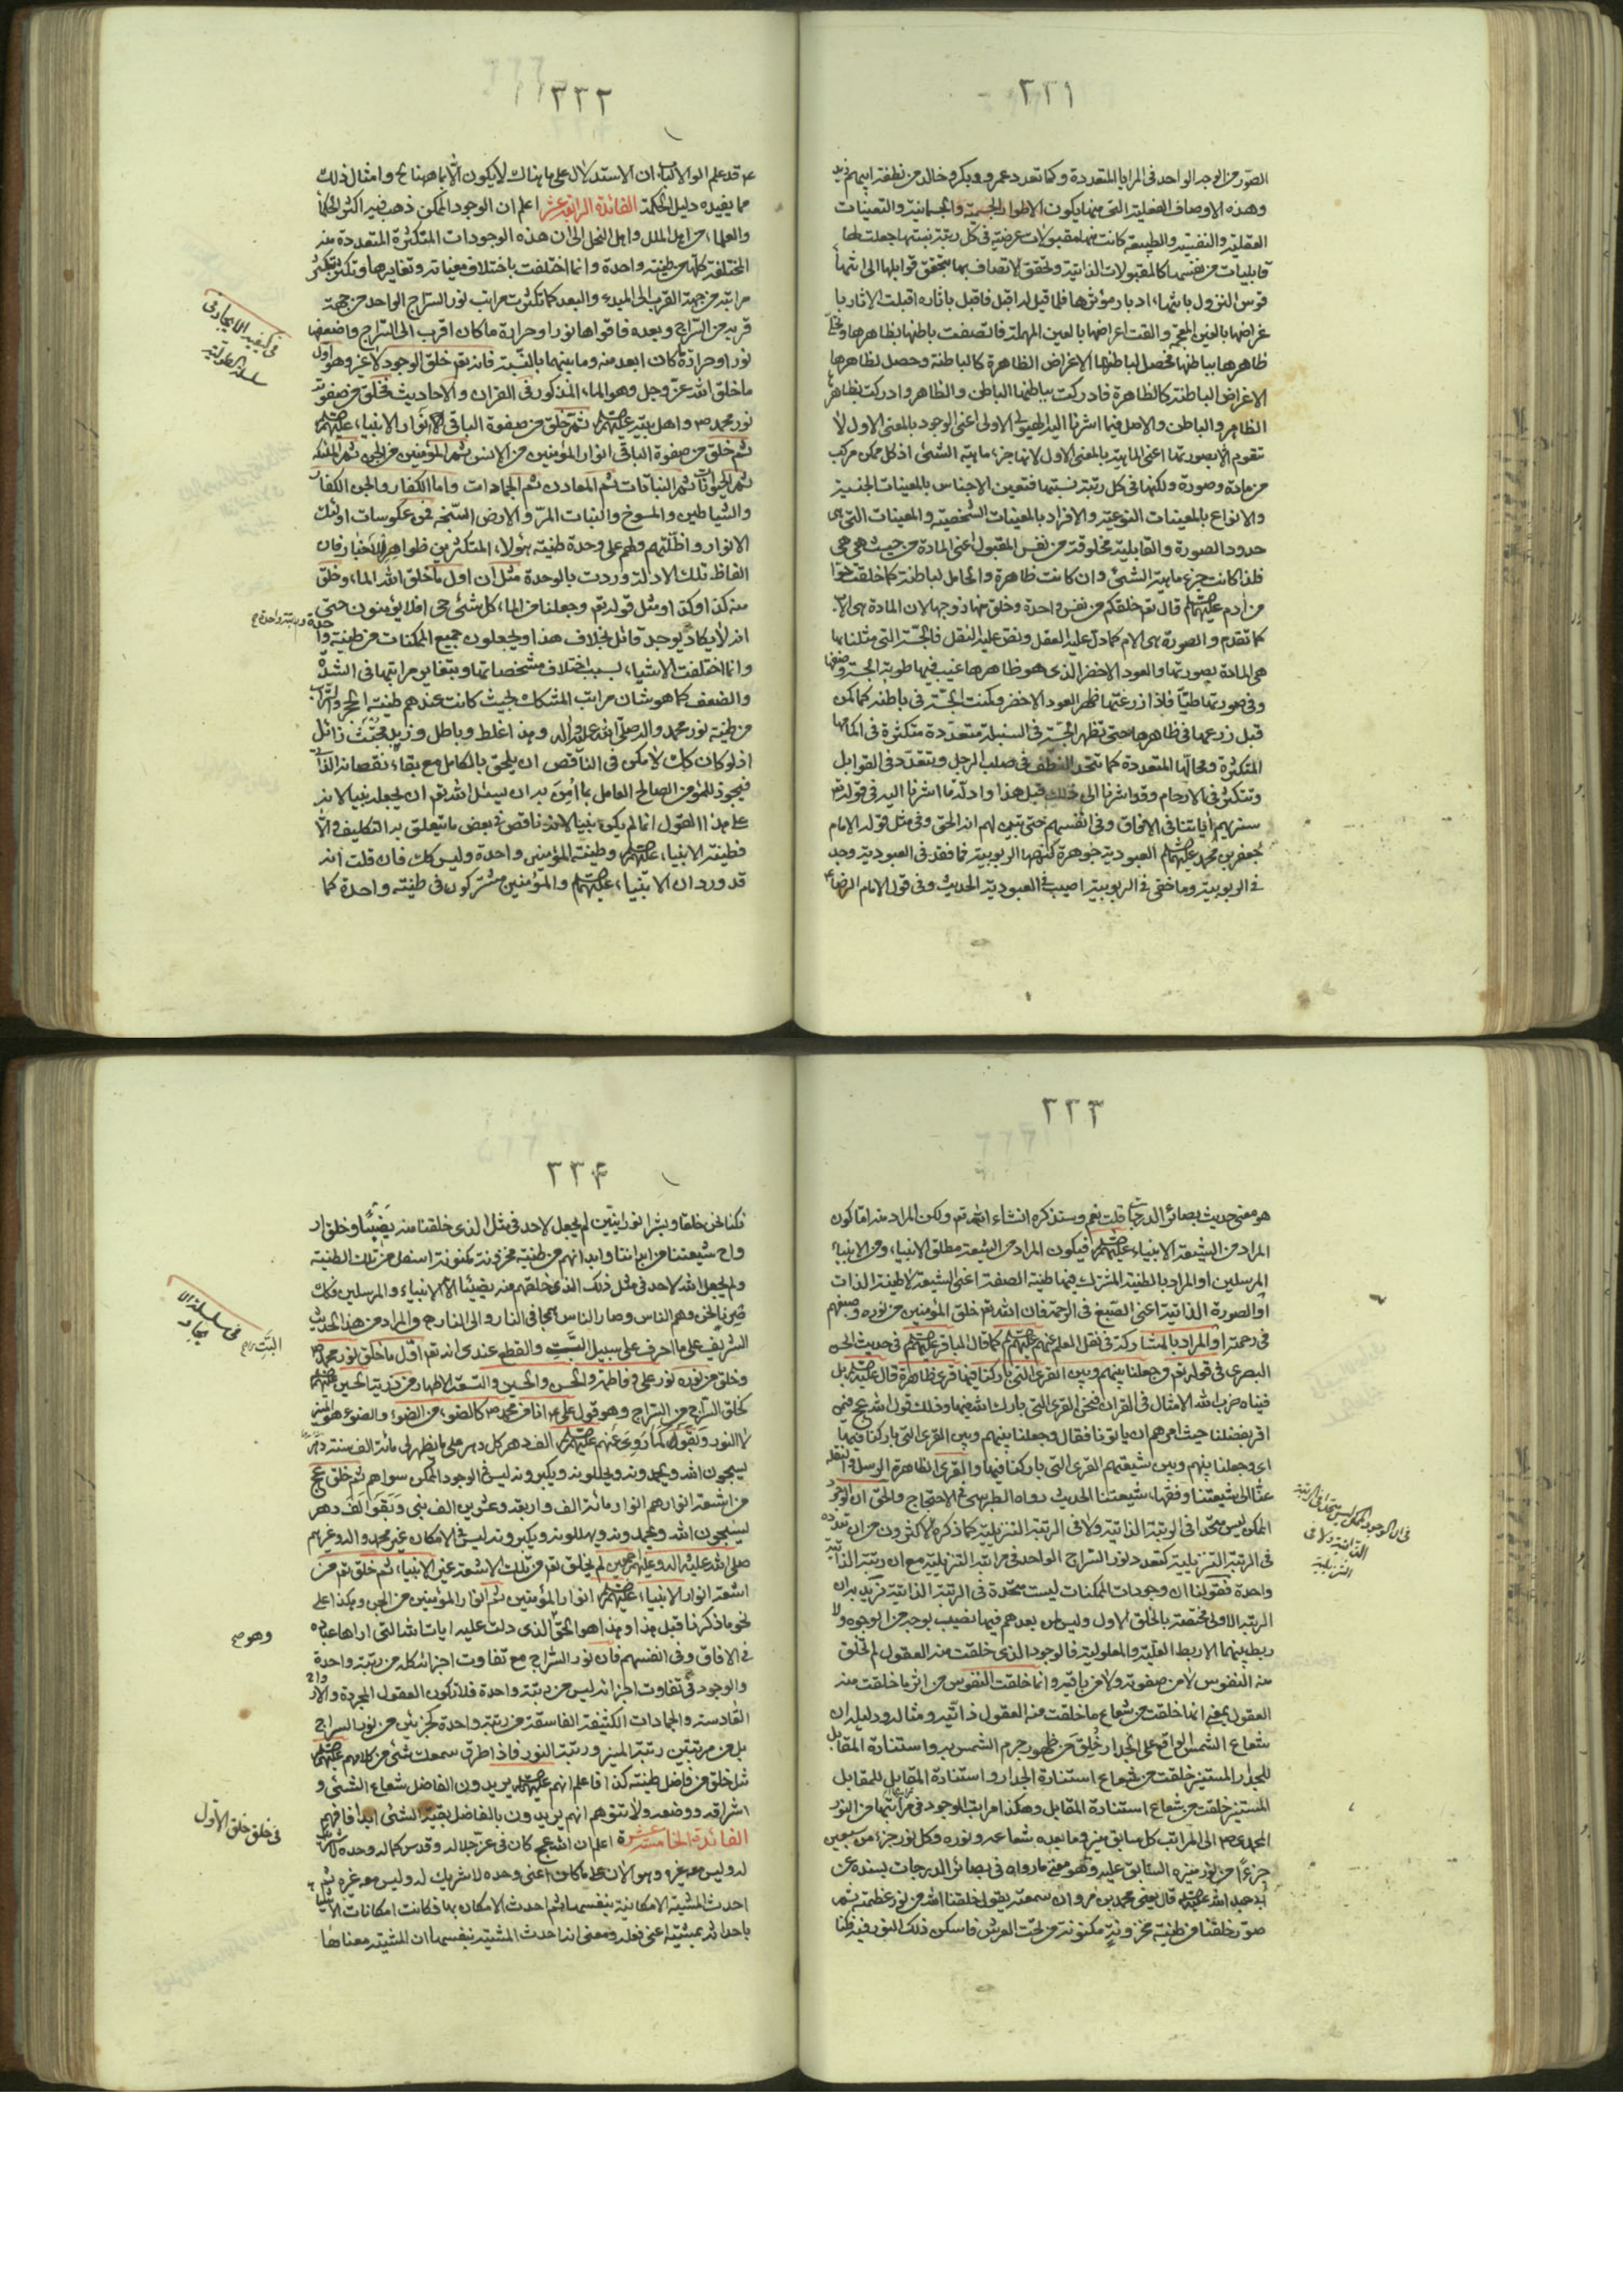 ٣٣١
الصور من الوجه الواحد فى المرايا المتعددة وكما تعدد عمرو وبكر وخالد من نطفة ابيهم زيد
وهذه الاوصاف الفعلية التى منها يكون الاطوار الجسمية والجسمانية والتعينات
العقلية والنفسية والطبيعية كانت منها مقبولات عرضية فى كل رتبة بنسبتها جعلت لها
قابليات من نفسها كالمقبولات الذاتية وتحقق الاتصاف بها بتحقق قوابلها الى انتهاء
قوس النزول بانتهاء ادبار مؤثرها فلما قيل له اقبل فاقبل باثاره اقبلت الاثار با
غراضها بالغين المعجمة والقت اعراضها بالعين المهملة فاتصفت باطنها بظاهرها
ظاهرها بباطنها فحصل لباطنها الاغراض الظاهرة كالباطنة وحصل لظاهرها
الاغراض الباطنة كالظاهرة فادركت بباطنها الباطن والظاهر وادركت بظاهرها
الظاهر والباطن والاصل فيما اشرنا اليه الهيولى الاولى اعنى الوجود بالمعنى الاول لا
تتقوم الا بصورتها اعنى الماهية بالمعنى الاول لانها جزء ماهية الشئ اذ كل ممكن مركب
من مادة وصورة ولكنها فى كل رتبة بنسبتها فتعين الاجناس بالمعينات الجنسية
والانواع بالمعينات النوعية والافراد بالمعينات الشخصية والمعينات التى هى
حدود الصورة والقابلية مخلوقة من نفس المقبول اعنى المادة من حيث هى هى
فلذا كانت جزء ماهية الشئ وان كانت ظاهرة والحامل لباطنة كما خلقت حوا
من ادم عليهما السلام قال تعم خلقكم من نفس واحدة وخلق منها زوجها لان المادة هى الاب
كما تقدم والصورة هى الام كما دل عليه العقل ونص عليه النقل فالحبة التى مثلنا بها
هى المادة بصورتها والعود الاخضر الذى هو ظاهرها غيب فيها طوية الحبة
وفى صورتها طيا فاذا زرعتها ظهر العود الاخضر وكمنت الحبة فى باطنه كما كمن
قبل زرعها فى ظاهرها حتى تظهر الحبة فى السنبلة متعددة متكثرة فى اكمامها
المتكثرة ومحالها المتعددة كما تتحد النطف فى صلب الرجل وتتعدد فى القوابل
وتتكثر فى الارحام وقد اشرنا الى ذلك قبل هذا وادلة ما اشرنا اليه فى قوله تعم
سنريهم اياتنا فى الافاق وفى انفسهم حتى يتبين لهم انه الحق وفى مثل قول الامام
جعفر بن محمد عليهما السلام العبودية جوهرة كنهها الربوبية فما فقد فى العبودية وجد
فى الربوبية وما خفى فى الربوبية اصيب فى العبودية الحديث وفى قول الامام الرضا ع
٣٣٢
قد علم اولوا الالباب ان الاستدلال على ما هناك لا يكون الا بما ههنا وامثال ذلك
مما يفيده دليل الحكمة الفائدة الرابعة عشر اعلم ان الوجود الممكن ذهب فيه اكثر الحكماء
والعلماء من اهل الملل واهل النحل الى ان هذه الوجودات المتكثرة المتعددة منه
المختلفة كلها من طينة واحدة وانما اختلفت باختلاف وتغايرها وتكثرت بتكثر
مراتبه من جهة القرب الى المبدء والبعد كما تكثرت مراتب نور السراج الواحد من جهة
قربه من السراج وبعده فاقواها نورا وحرارة ما كان اقرب الى السراج واضعفها
نورا وحرارة ما كان ابعد منه وما بينهما بالنسبة فانه تعم خلق الوجود لا غير وهو اول
ما خلق الله عز وجل وهو الماء المذكور فى القران والاحاديث فخلق من صفوته
نور محمد ص واهل بيته عليهم السلام ثم خلق من صفوة الباقى انوار الانبياء عليهم السلام
ثم خلق من صفوة الباقى انوار المؤمنين من الانس ثم المؤمنين من الجن ثم الملئكة
ثم الحيوانات ثم النباتات ثم المعادن ثم الجمادات واما الكفار والجن الكفار
والشياطين والمسوخ والنبات المر والارض السبخة فمن عكوسات اولئك
الانوار واظلتهم ولهم على وحدة طينة هؤلاء المتكثرين ظواهر الاخبار فان
الفاظ تلك الادلة وردت بالوحدة مثل ان اول ما خلق الله الماء وخلق
منه كذا وكذا ومثل قوله تعم وجعلنا من الماء كل شئ حى افلا يؤمنون حتى
انه لا يكاد يوجد قائل بخلاف هذا ويجعلون جميع الممكنات من طينة واحدة
وانما اختلفت الاشياء بسبب اختلاف مشخصاتها وبتغاير مراتبها فى الشدة
والضعف كما هو شان مراتب المشكك بحيث كانت عندهم طينة الحجر والتراب
من طينة نور محمد واله صلى الله عليه واله وهذا غلط وباطل مجتث زائل
اذ لو كان كك لامكن فى الناقص ان يلحق بالكامل مع بقاء نقصانه الذاتى
فيجوز للمؤمن الصالح العامل بما أمر به ان يسئل الله تعم ان يجعله نبيا لانه
على هذا القول انما لم يكن نبيا لانه ناقص فى بعض ما يتعلق به التكليف والا
فطينة الانبياء عليهم السلام وطينة المؤمنين واحدة وليس كك فان قلت انه
قد ورد ان الانبياء عليهم السلام والمؤمنين مشتركون فى طينة واحدة كما
فى كيفية الايجاد فى
سلسلة الطولية
٣٣٣
هو معنى حديث بصائر الدرجات قلت نعم وسنذكره انشاء الله تعم ولكن المراد منه اما كون
المراد من الشيعة الانبياء عليهم السلام فيكون المراد من الشيعة مطلق الانبياء ومن الانبياء
المرسلين او المراد بالطينة المشترك فيها طينة الصفة اعنى الشيعة لا طينة الذات
او الصورة الذاتية اعنى الصبغ فى الرحمة فان الله تعم خلق المؤمنين من نوره وصبغهم
فى رحمته او المراد بالمشاركة فى نقل العلم عنهم عليهم السلام كما قال الباقر عليه السلام فى حديث الحسن
البصرى فى قوله تعم وجعلنا بينهم وبين القرى التى باركنا فيها قرى ظاهرة قال عليه السلام بل
فينا ضرب الله الامثال فى القران فنحن القرى التى بارك الله فيها وذلك قول الله عج فمن
اقر بفضلنا حيث امرهم ان ياتونا فقال وجعلنا بينهم وبين القرى التى باركنا فيها
اى وجعلنا بينهم وبين شيعتهم القرى التى باركنا فيها والقرى الظاهرة الرسل والنقلة
عنا الى شيعتنا وفقهاء شيعتنا الحديث رواه الطبرسى فى الاحتجاج والحق ان الوجود
الممكن ليس متحدا فى الرتبة الذاتية ولا فى الرتبة التنزيلية كما ذكره الاكثرون من ان تعدده
فى الرتبة التنزيلية كتعدد نور السراج الواحد فى مراتبه التنزيلية مع ان رتبته الذاتية
واحدة فقولنا ان وجودات الممكنات ليست متحدة فى الرتبة الذاتية نريد به ان
الرتبة الاولى مختصة بالخلق الاول وليس لمن بعدهم فيها نصيب بوجه من الوجوه ولا
ربط بينهما الا ربط العلية والمعلولية فالوجود الذى خلقت منه العقول لم تخلق
منه النفوس لا من صفوته ولا من باقيه وانما خلقت النفوس من اثر ما خلقت منه
العقول بمعنى انما خلقت من شعاع ما خلقت منه العقول ذاتيه ومثاله ودليله ان
شعاع الشمس الواقع على الجدار خلق من ظهور جرم الشمس به واستنارة المقابل
للجدار المستنير خلقت من شعاع استنارة الجدار واستنارة المقابل للمقابل
المستنير خلقت من شعاع استنارة المقابل وهكذا مراتب الوجود فى مراتبها من النور
المحمدى ص الى المراتب كل سابق منير وما بعده شعاعه ونوره وكل نور جزء من سبعين
جزءا من نور منيره السابق عليه وهو معنى ما رواه فى بصائر الدرجات بسنده عن
ابى عبد الله عليه السلام قال يعنى محمد بن مروان سمعته يقول خلقنا الله من نور عظمته ثم
صور خلقنا من طينة مخزونة مكنونة من تحت العرش فاسكن ذلك النور فيه فكنا
فى ان الوجود الممكن ليس متحدا فى الرتبة
الذاتية ولا فى
التنزيلية
٣٣٤
فكنا نحن خلقا وبشرا نورانيين لم يجعل لاحد فى مثل الذى خلقنا منه نصيبا وخلق ار
واح شيعتنا من ابداننا وابدانهم من طينة مخزونة مكنونة اسفل من تلك الطينة
ولم يجعل الله لاحد فى مثل ذلك الذى خلقهم منه نصيبا الا الانبياء والمرسلين فلذلك
صرنا نحن وهم الناس وصار الناس همجا فى النار والى النار ح والمراد من هذا الحديث
الشريف على ما اعرف على سبيل البت والقطع عندى انه تعم اول ما خلق نور محمد ص
وخلق من نوره نور على وفاطمة والحسن والحسين والتسعة الاطهار من ذرية الحسين عليهم السلام
كخلق السراج من السراج وهو قول على ع انا من محمد ص كالضوء من الضوء والضوء هو المنير
لا النور وبقوا كما روى عنهم عليهم السلام الف دهر كل دهر على ما يظهر لى مائة الف سنة
يسبحون الله ويحمدونه ويهللونه ويكبرونه ليس فى الوجود الممكن سواهم ثم خلق عج
من اشعة انوارهم انوار مائة الف واربعة وعشرين الف نبى وبقوا الف دهر
يسبحون الله ويحمدونه ويهللونه ويكبرونه ليس فى الامكان غير محمد واله وغيرهم
صلى الله عليه واله وعليهم اجمعين لم يخلق تعم من تلك الاشعة غير الانبياء ثم خلق تعم من
اشعة انوار الانبياء عليهم السلام انوار المؤمنين ثم انوار المؤمنين من الجن وهكذا على
نحو ما ذكرنا قبل هذا وهذا هو الحق الذى دلت عليه ايات الله التى اراها عباده
فى الافاق وفى انفسهم فان نور السراج مع تفاوت اجزائه كله من رتبة واحدة
والوجود فى تفاوت اجزائه ليس من رتبة واحدة فلا تكون العقول المجردة والارواح
القادسة والجمادات الكثيفة الفاسقة من رتبة واحدة كجزئين من نور السراج
بل من مرتبتين رتبة المنير ورتبة النور فاذا طرق سمعك شئ من كلامهم عليهم السلام
مثل خلق من فاضل طينته كذا فاعلم انهم عليهم السلام يريدون الفاضل شعاع الشئ و
اشراقه وضوءه ولا تتوهم انهم يريدون بالفاضل بقية الشئ ابدا فافهم
الفائدة الخامسة عشرة اعلم ان الله عج كان فى عز جلاله وقدس كماله وحده لا شريك
له وليس معه غيره وهو الان على ما كان اعنى وحده لا شريك له وليس معه غيره ثم
احدث المشية الامكانية بنفسها ثم احدث الامكان بها فكانت امكانات الاشياء
باحداثه بمشيته اعنى فعله ومعنى انه احدث المشية بنفسها ان المشية معناها
فى سلسلة الا
يجاد
البت
وهو
فى خلق خلق الاول